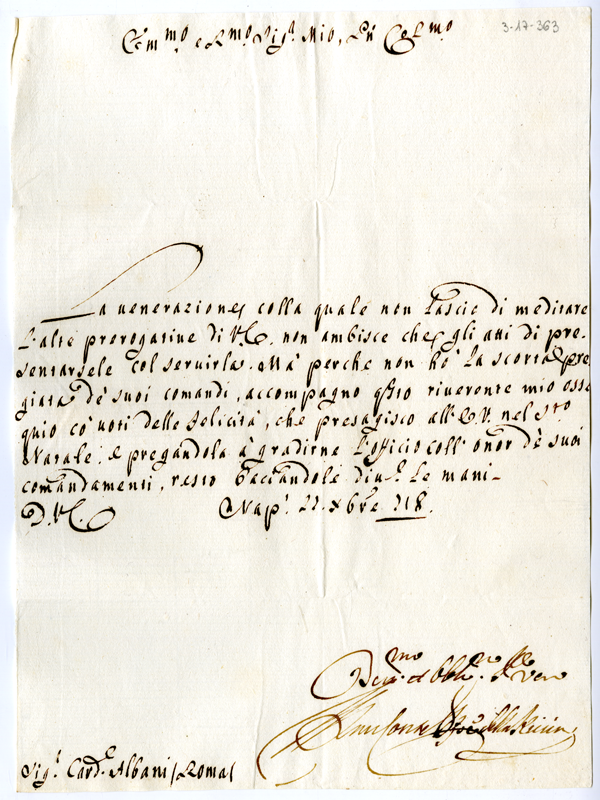 3-17-363
Em.mo e R.mo Sig.r Mio, Pñ Col.mo
La ueneratione colla quale non lascio di meditare
l'alte prerogatiue di V.E. non ambisce che gli atti di pre-
sentarsele col seruirla. Mà perche non hò la scorta pre
giata dè suoi comandi, accompagno q.sto riuerente mio osse
quio co' uoti delle felicità, che presagisco all'E.V. nel S.to
Natale. e pregandola à gradirne l'officio coll'onor dè suoi
comandamenti, resto baciandole diu.te le mani-
D.V.E. Nap.i 22. Xbre 718.
Diu.mo et Obl.mo Ser.re Vero
Sig.r Card.e Albani / Roma /